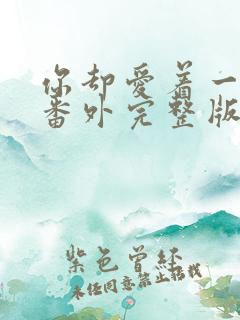 你却爱着一
番外完整版
紫色曾经
未经同意禁止搭载